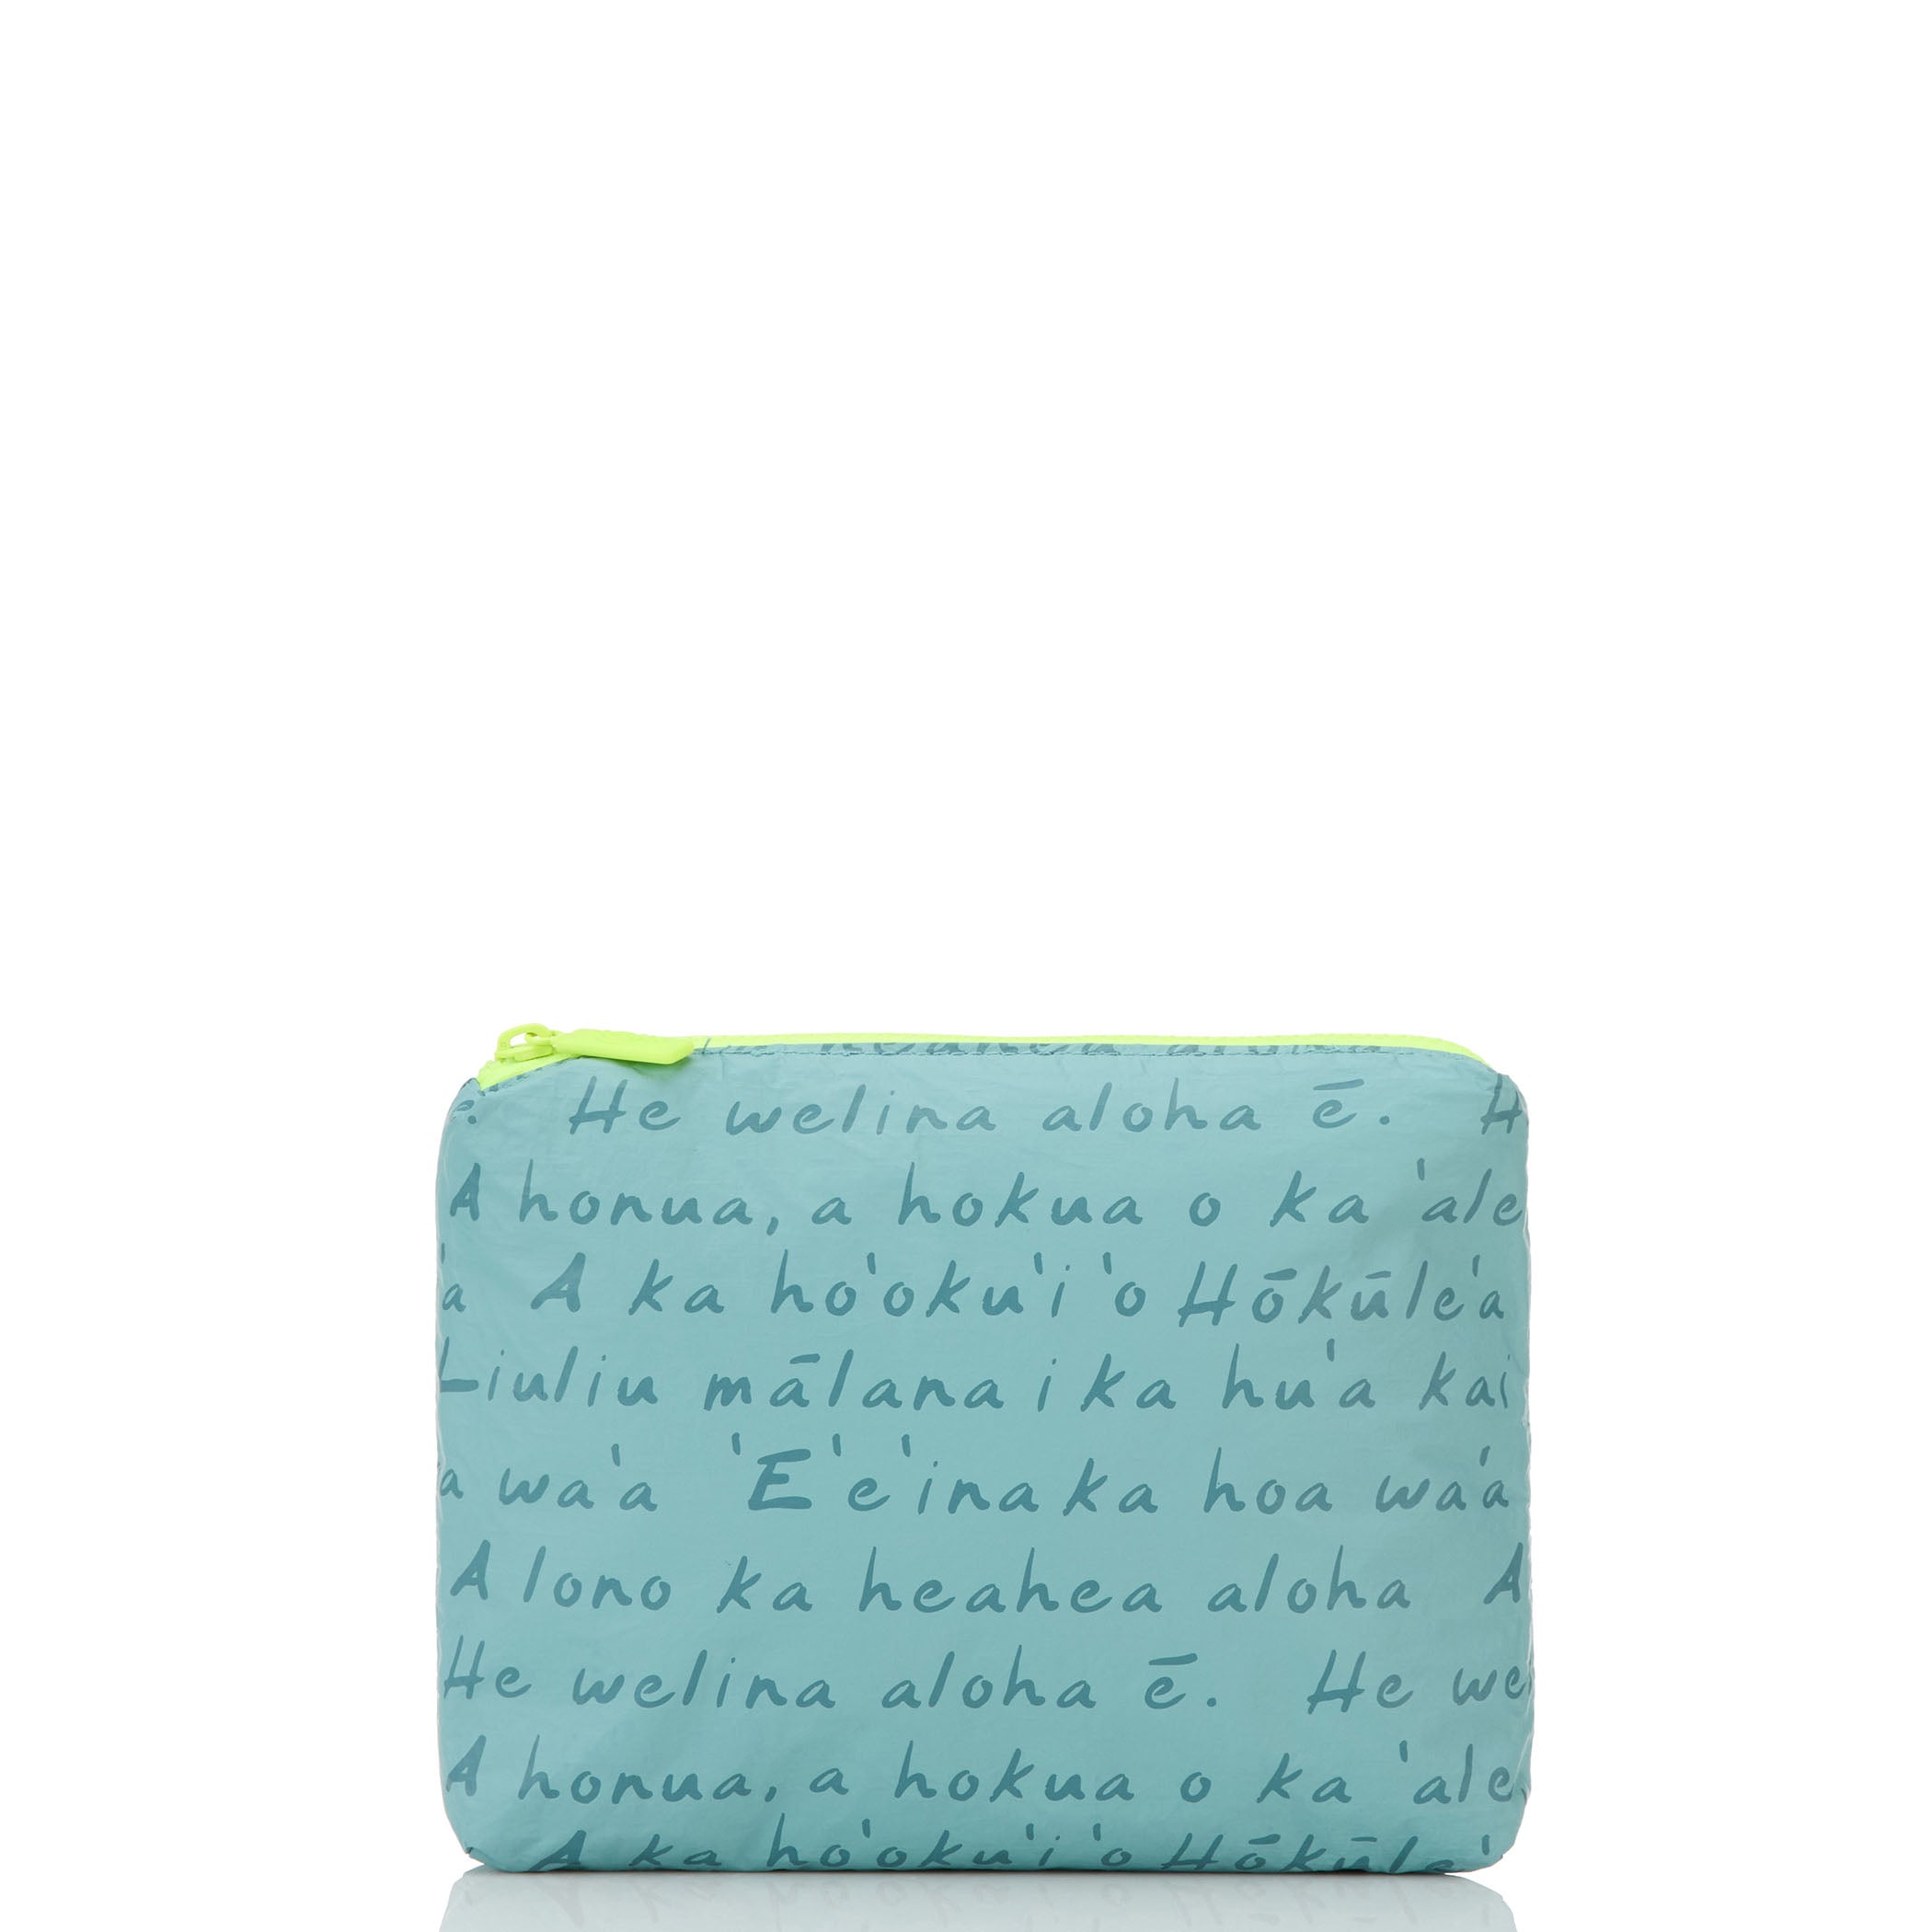 heahea aloha
e. He welina aloha ē. H
A honua, a hokua o ka 'ale
'a A ka ho'oku'i 'o Hōkūle'a
Liuliu mālana i ka hu'a kai
a wa'a 'E'e'ina ka hoa wa'a
A lono ka heahea aloha A
He welina aloha ē. He we
A honua, a hokua o ka 'ale
A ka ho'oku'i 'o Hōkūle'